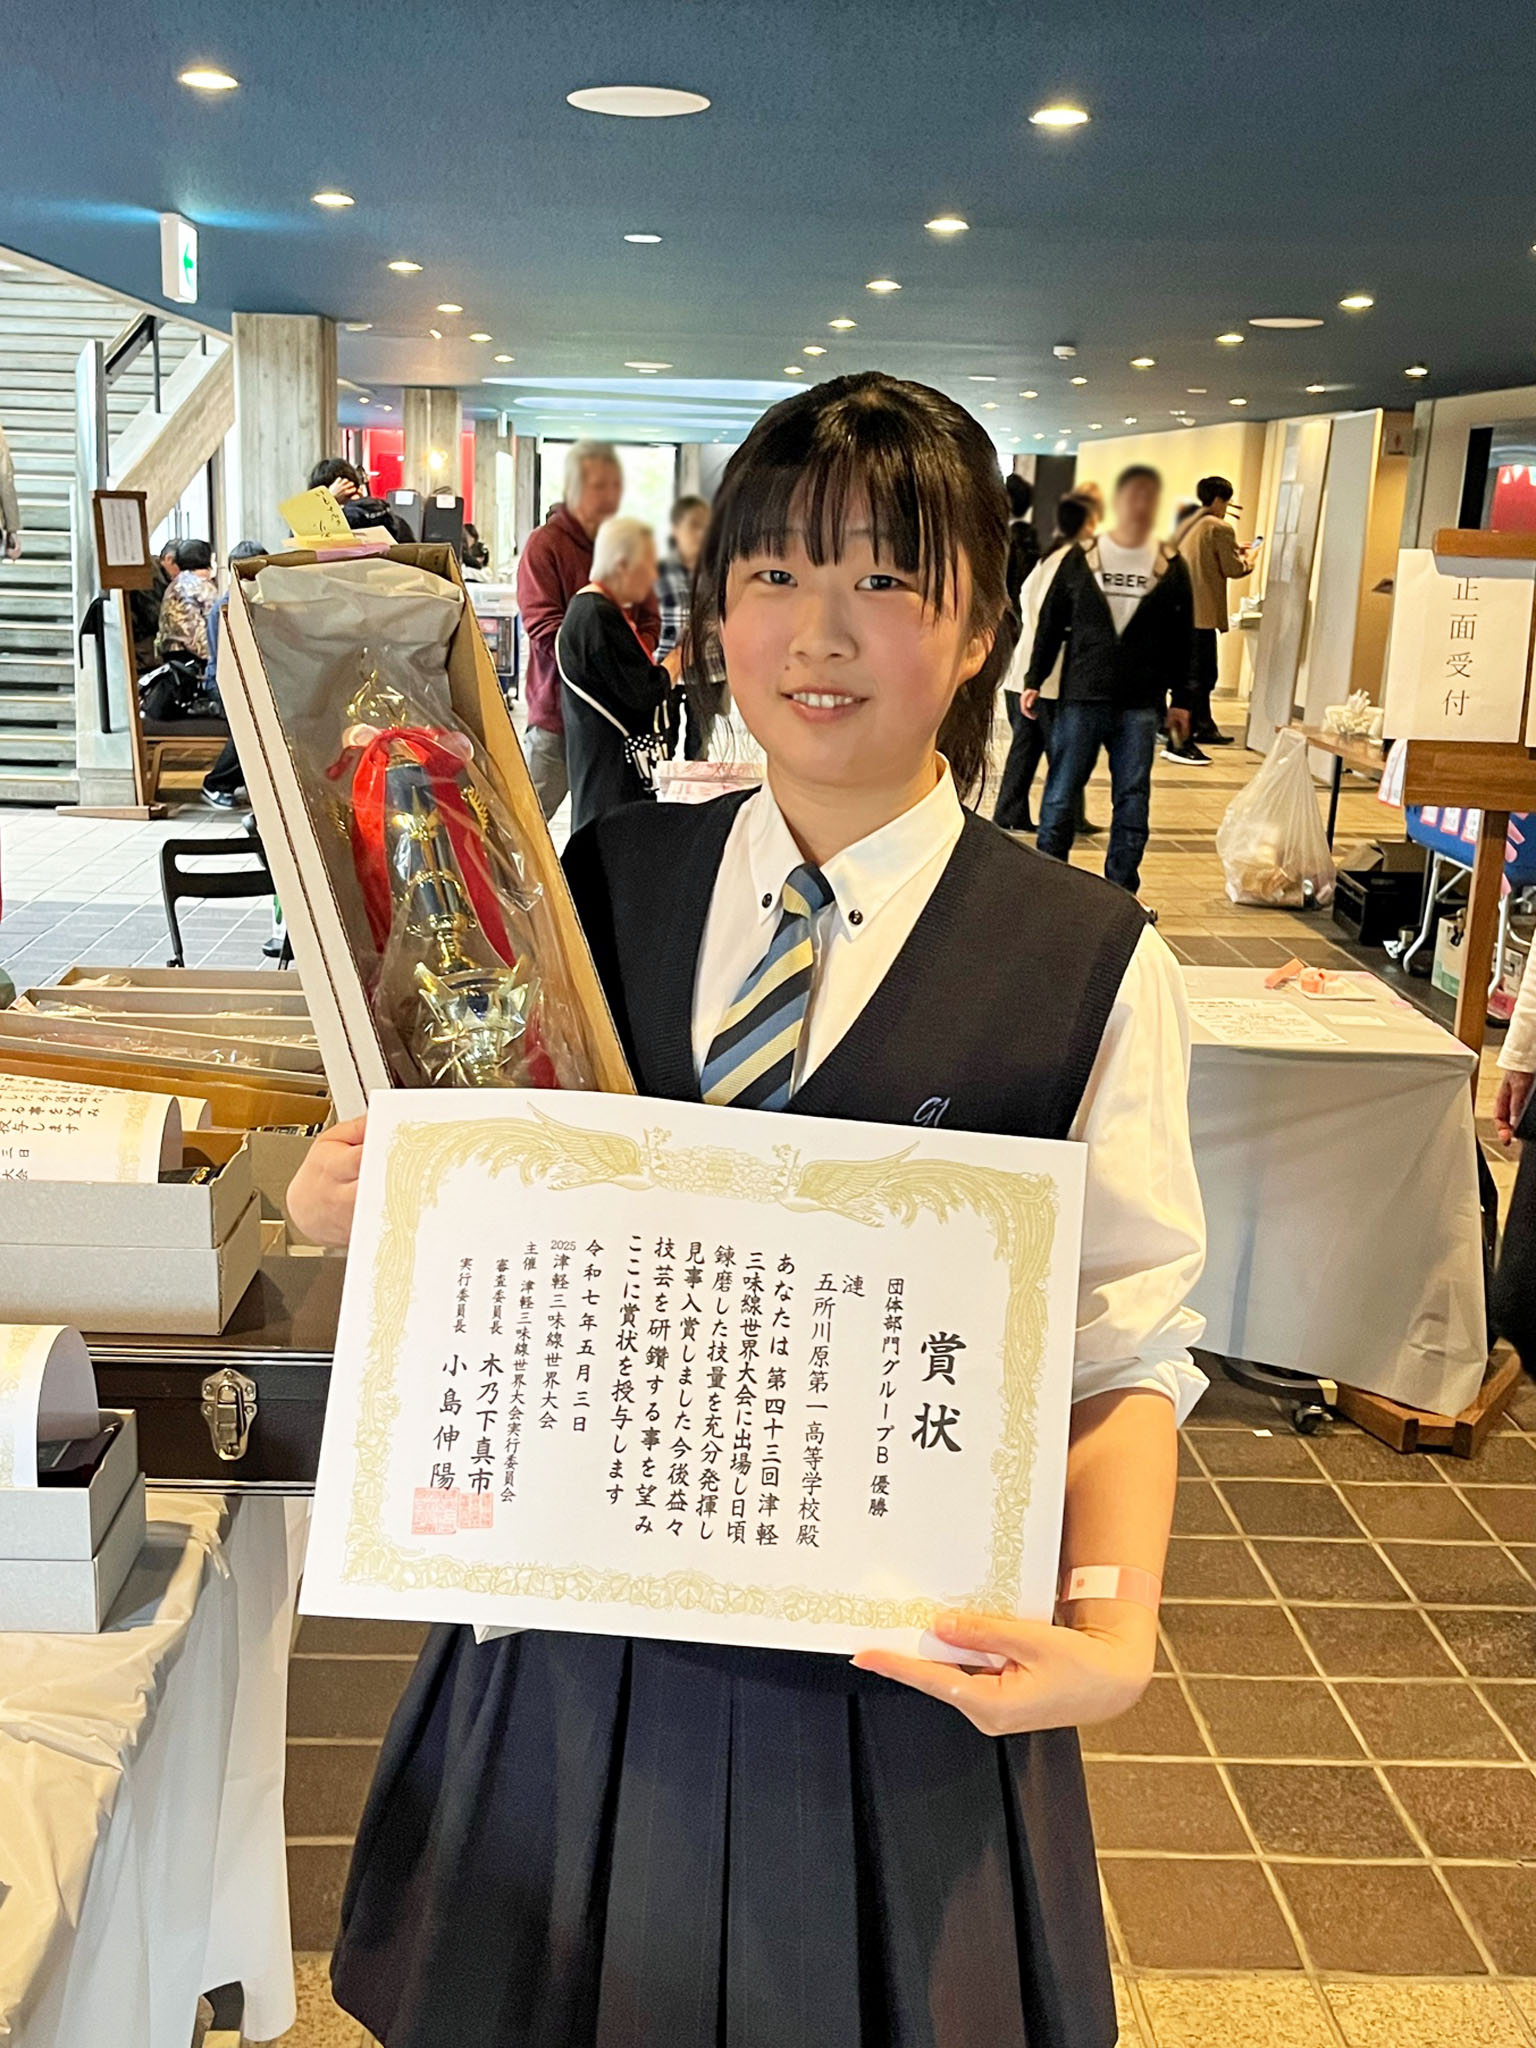 賞状
団体部門グループB 優勝
漣
五所川原第一高等学校殿
あなたは第四十三回津軽
三味線世界大会に出場し日頃
錬磨した技量を充分発揮し
見事入賞しました今後益々
技芸を研鑽する事を望み
ここに賞状を授与します
令和七年五月三日
2025津軽三味線世界大会
主催 津軽三味線世界大会実行委員会
審査委員長 木乃下真市
実行委員長 小島伸陽
正面受付
RBER
G1
する事を望み
授与します
三日
大会